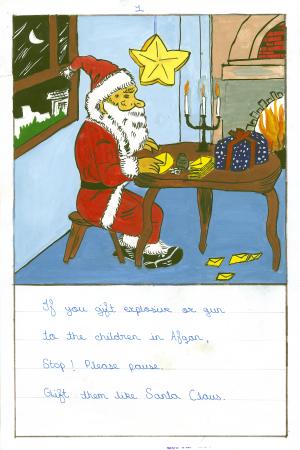 1
If you gift explosive or gun
to the children in Afgan,
Stop! Please pause.
Gift them like Santa Claus.